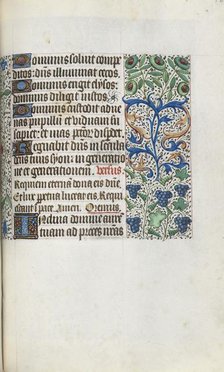 Dominus soluit compe
ditos: dn̄s illuminat cecos.
Dominus erigit elysos:
dominus diligit iustos.
Dominus custodit adue
nas pupillū et viduam su
scipiet: et vias p̄c̄tor̄ disper.
Regnabit dn̄s in secula
deus tuus syon: in generatiōe
et generationem. versus.
Requiem eternā dona eis dn̄e.
Et lux perpetua luceat eis. Requi
escant ī pace. Amen. Oremus.
Inclina domine aurē
tuam ad preces n̄r̄as